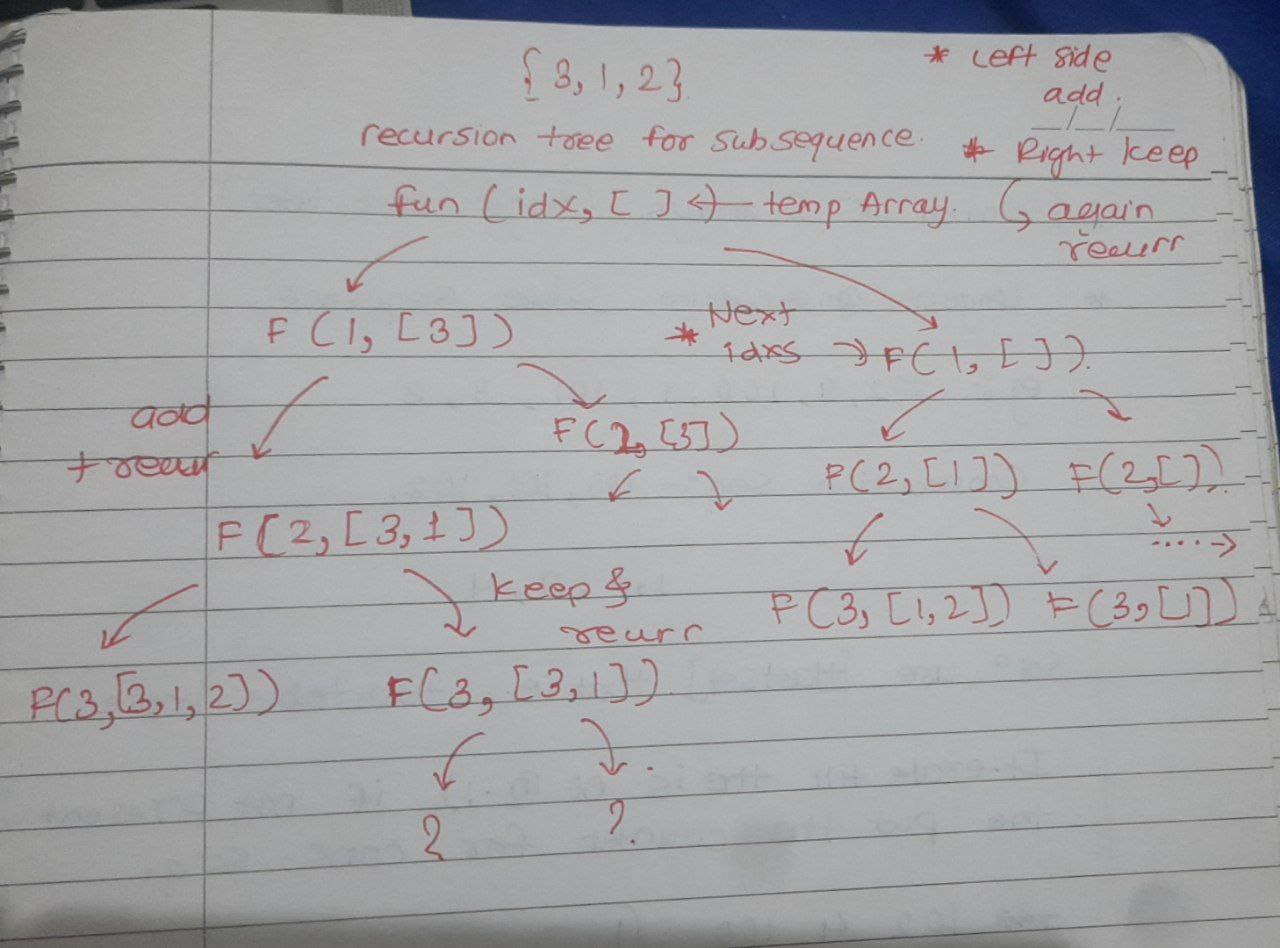 {3, 1, 2}
recursion tree for subsequence.
* Left side
add.
* Right keep
↳ again
recurr
fun (idx, [ ] ← temp Array.
F(1, [3])
* Next
idxs → F(1, [ ]).
add
+ recur
F(2, [3])
F(2, [1]) F(2, [ ])
F(2, [3, 1])
.....→
keep &
recurr
F(3, [1, 2]) F(3, [1])
F(3, [3, 1, 2]) F(3, [3, 1])
? ?